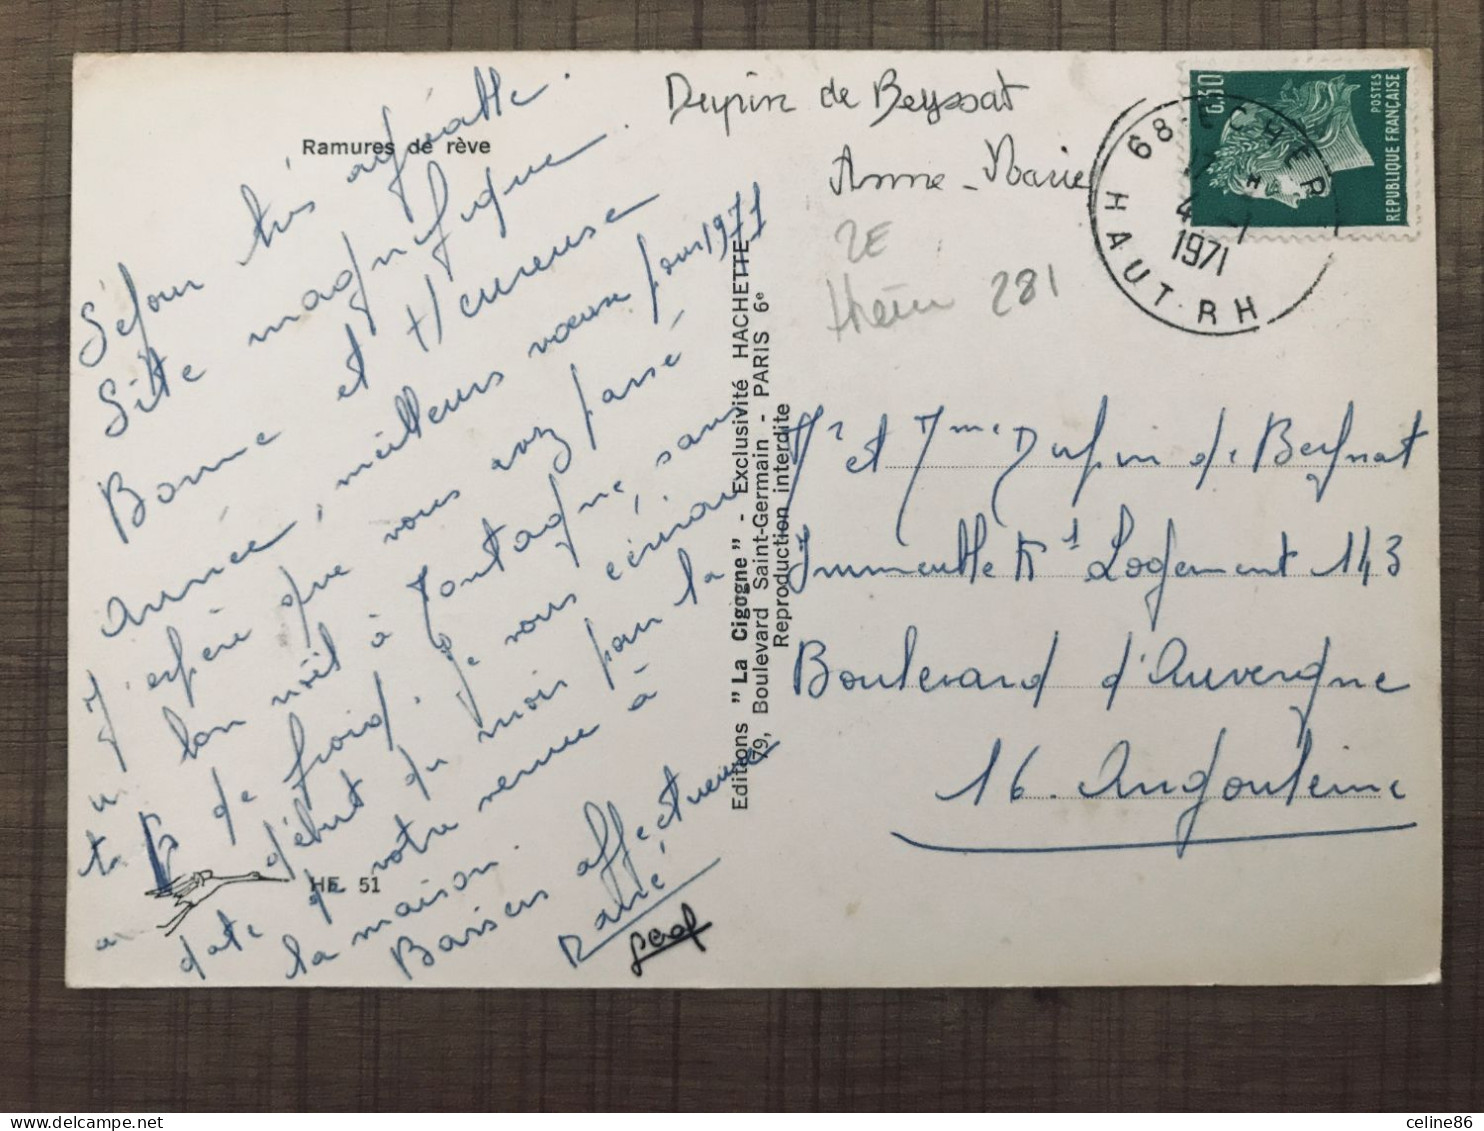 Ramures de rêve
Séjour très agréable.
Site magnifique.
Bonne et Heureuse
Année, meilleurs vœux pour 1971
J'espère que vous avez passé
un bon noël à Montagne, sans
de froid. Je vous écrirai
début du mois pour la
date de votre venue à
la maison.
Baisers affectueux
HE. 51
Editions "La Cigogne" - Exclusivité HACHETTE
79, Boulevard Saint-Germain - PARIS 6e
Reproduction interdite
Dupin de Beyssat
Anne-Marie
2E
281
0,30
POSTES
REPUBLIQUE FRANÇAISE
68-ECHERY
4-1
1971
HAUT-RH
Mr et Mme Dupin de Beyssat
Immeuble K1 Logement 143
Boulevard d'Auvergne
16. Angoulême
celine86